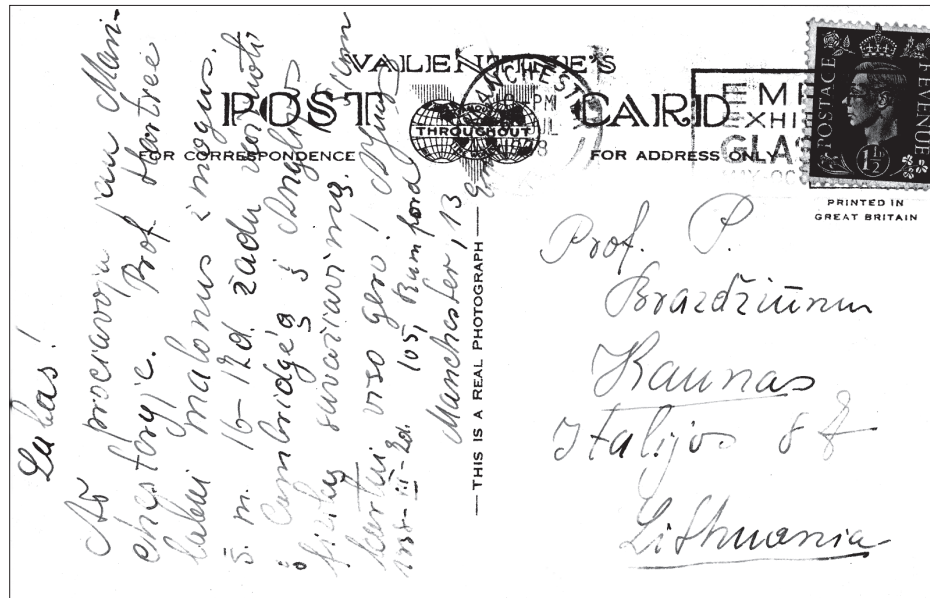 VALENTINE'S
POST CARD
THROUGHOUT
FOR CORRESPONDENCE
FOR ADDRESS ONLY
MANCHEST
PM
EMP
EXHI
GLAS
POSTAGE
REVENUE
1½
PRINTED IN
GREAT BRITAIN
THIS IS A REAL PHOTOGRAPH
Labas!
Aš jau Man-
chesteryje. Prof. Hartree
labai malonus žmogus.
š. m. 16-12d. žadu
į Cambridge'ą į Anglijos
fizikų suvažiavimą.
viso gero!
105,
Manchester, 13
Prof. P.
Brazdžiūnas
Kaunas
Italijos 8
Lithuania